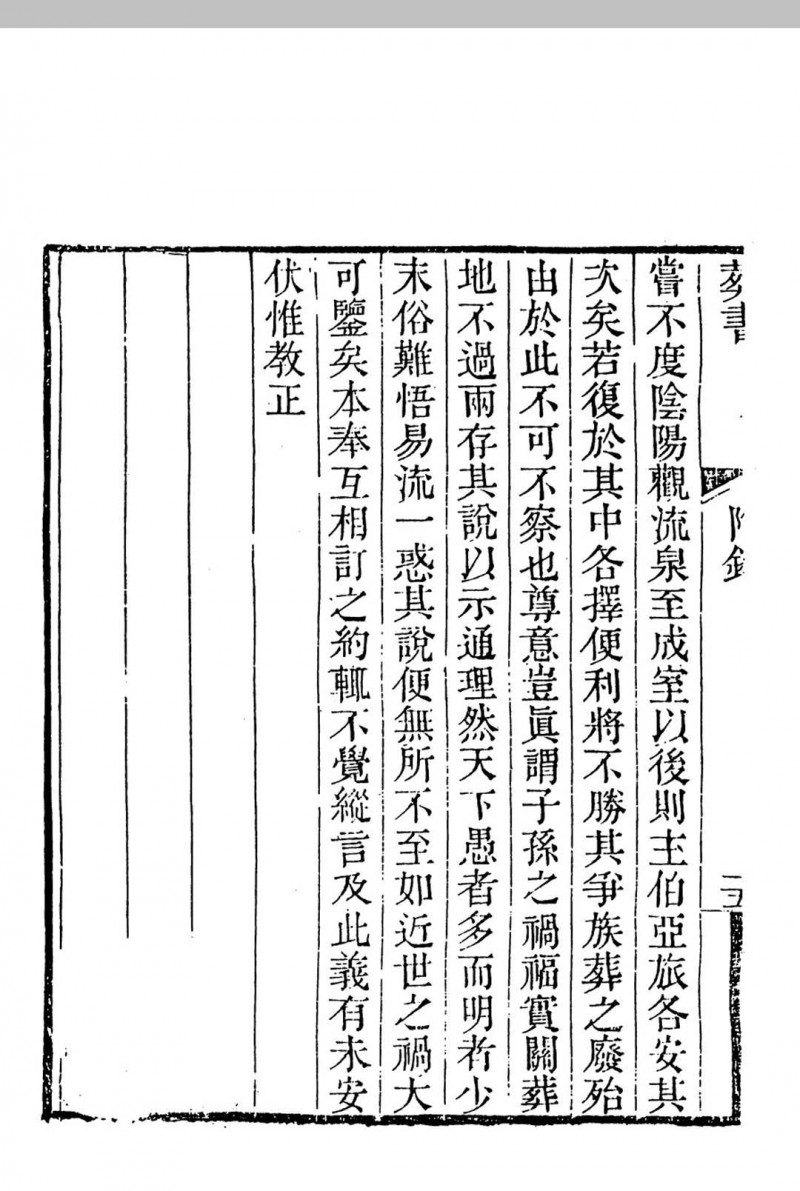 葬書
附錄
嘗不度陰陽觀流泉至成室以後則主伯亞旅各安其
次矣若復於其中各擇便利將不勝其爭族葬之廢殆
由於此不可不察也尊意豈眞謂子孫之禍福實關葬
地不過兩存其說以示通理然天下愚者多而明者少
末俗難悟易流一惑其說便無所不至如近世之禍大
可鑒矣本奉互相訂之約輒不覺縱言及此義有未安
伏惟教正